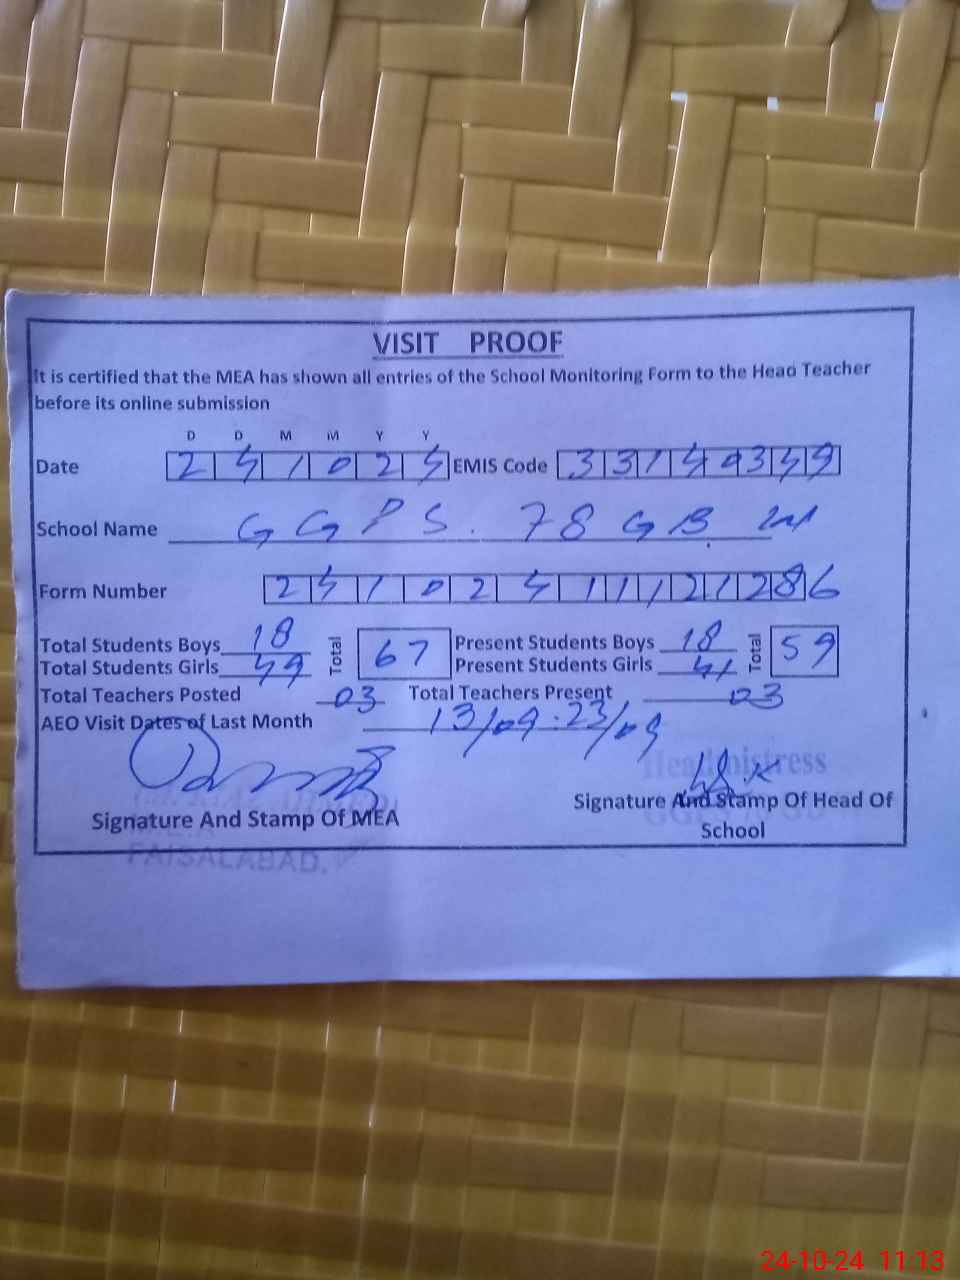 VISIT PROOF
It is certified that the MEA has shown all entries of the School Monitoring Form to the Head Teacher
before its online submission
D D M M Y Y
Date 241024 EMIS Code 33140349
School Name GGPS. 78 GB
Form Number 24102411121286
Total Students Boys 18 Total 67 Present Students Boys 18 Total 59
Total Students Girls 49 Present Students Girls 41
Total Teachers Posted 03 Total Teachers Present 03
AEO Visit Dates of Last Month 13/09 . 23/09
Headmistress
Signature And Stamp Of MEA Signature And Stamp Of Head Of
School
FAISALABAD.
24-10-24 11:13